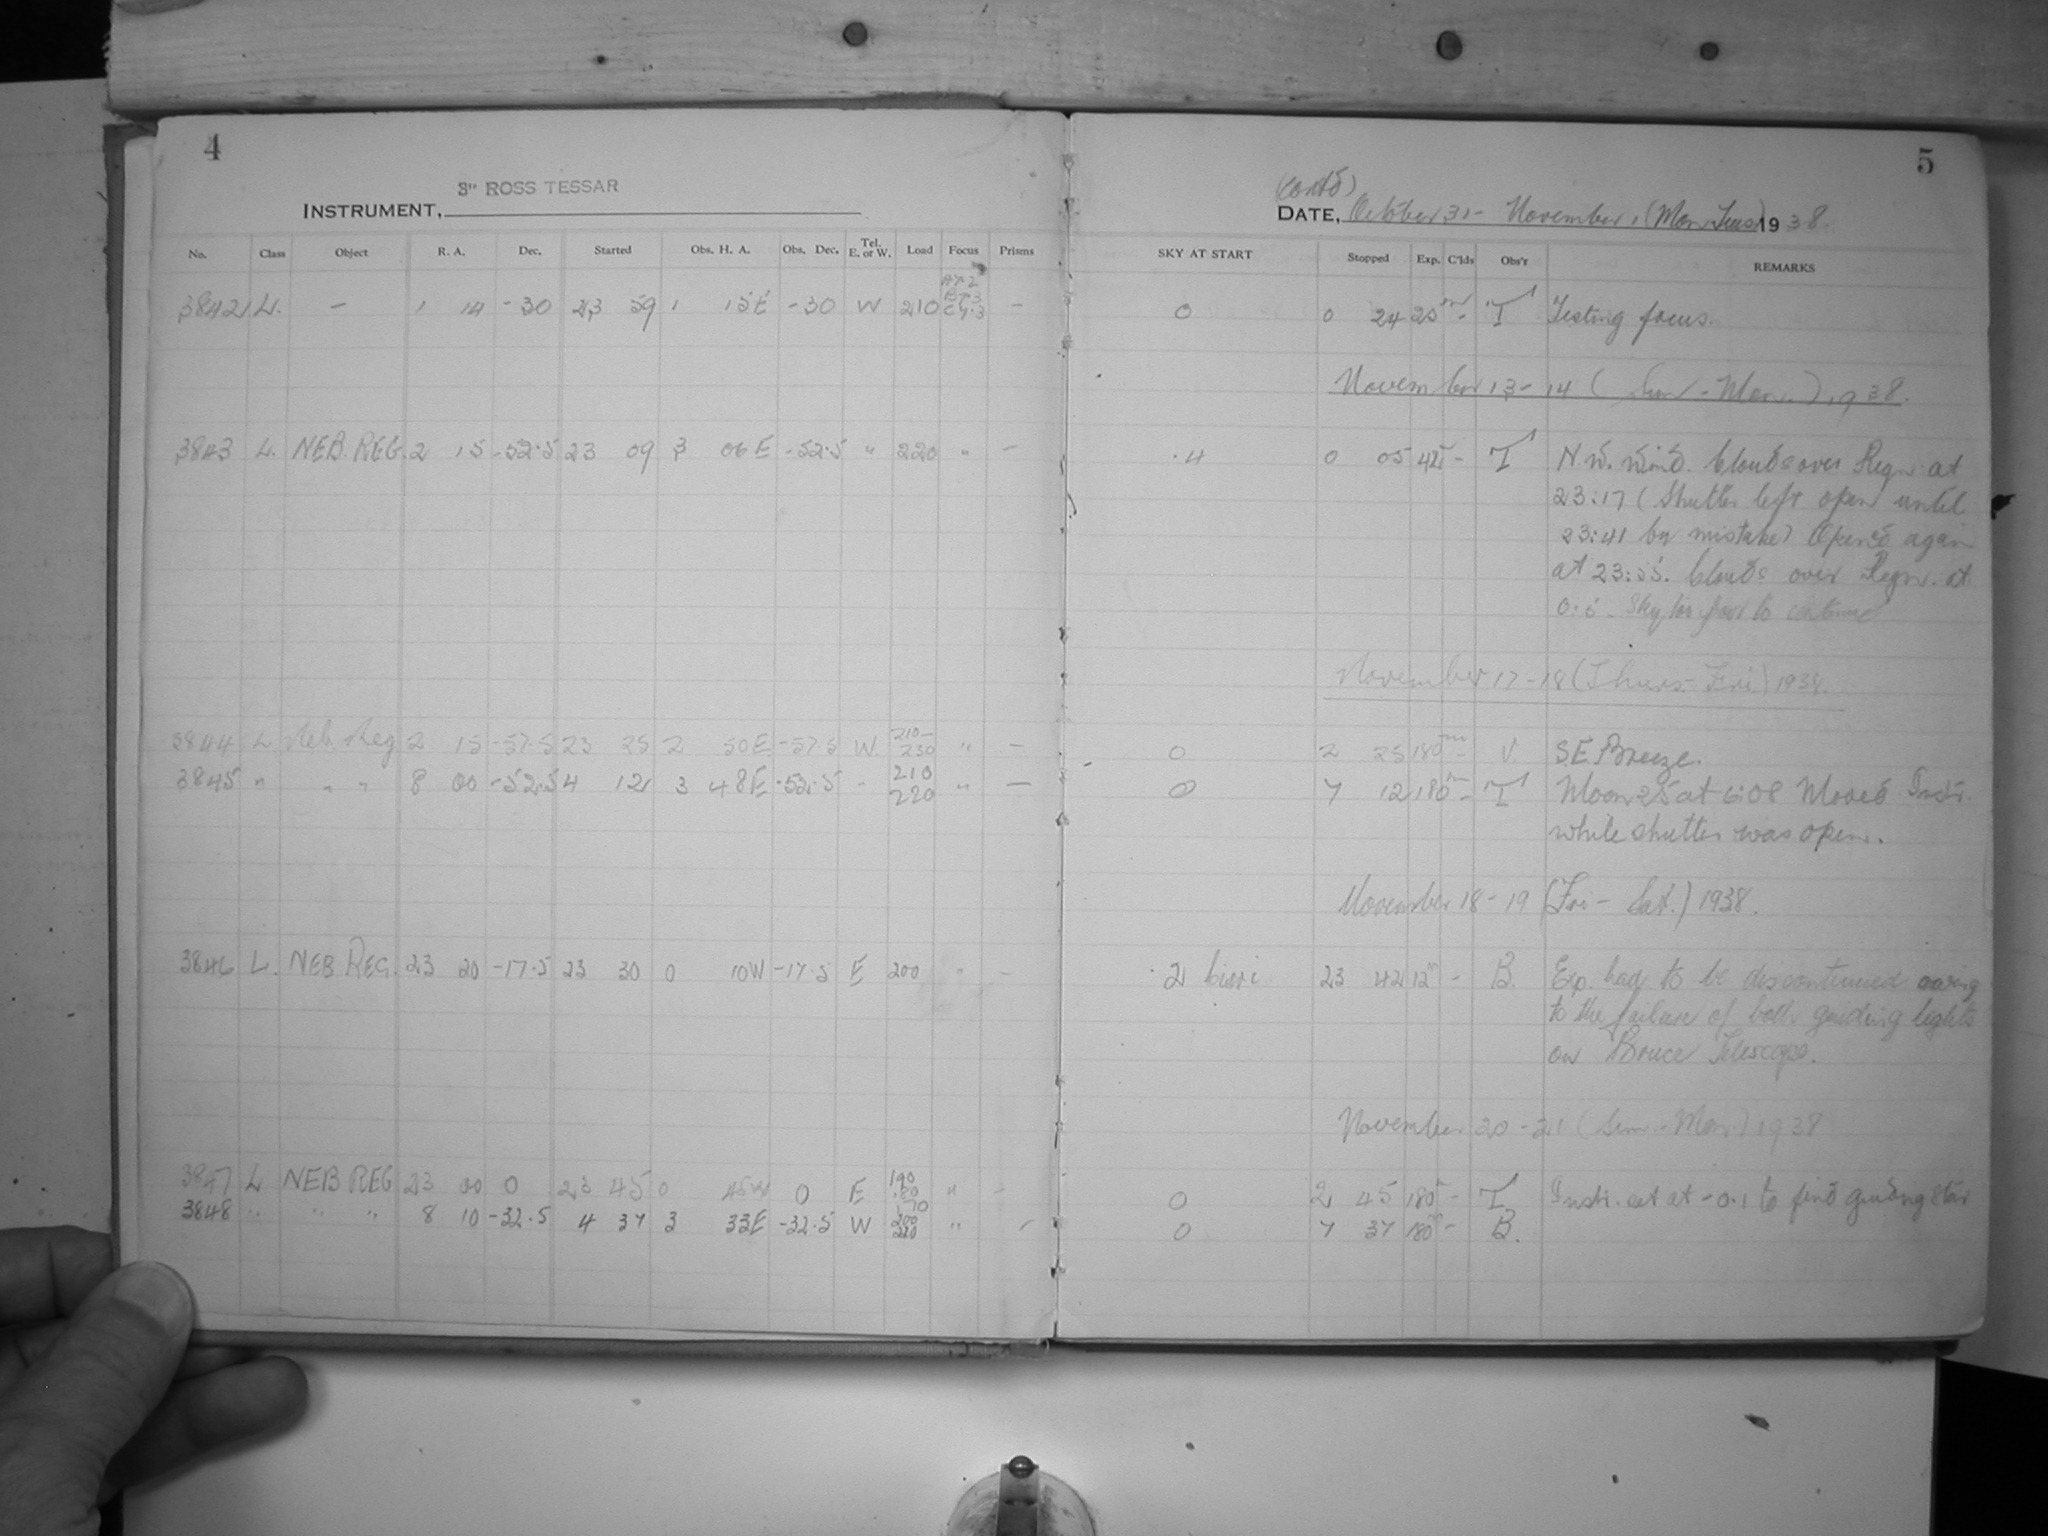 4
3" ROSS TESSAR
INSTRUMENT,
No. Class Object R. A. Dec. Started Obs. H. A. Obs. Dec. Tel. E. or W. Load Focus Prisms
3842 L. — 1 14 -30 23 59 1 15E -30 W 210 —
3843 L. NEB. REG. 2 15 -52.5 23 09 3 06E -52.5 " 220 " —
3844 L Neb. Reg 2 15 -57.5 23 25 2 50E -57.5 W. 210- 230 " —
3845 " " " 8 00 -52.5 4 12 3 48E -52.5 - 210 220 " —
3846 L. NEB REG. 23 20 -17.5 23 30 0 10W -17.5 E 200 " —
3847 L NEB REG 23 00 0 23 45 0 45W 0 E 190 180 170 " —
3848 " " " 8 10 -32.5 4 37 3 33E -32.5 W 200 "  —
5
(contd)
DATE, October 31 - November 1 (Mon-Tues) 1938.
SKY AT START Stopped Exp. C'lds Obs'r REMARKS
0 0 24 25m - T Testing focus.
November 13-14 (Sun-Mon.) 1938.
.4 0 05 - T N.W. Wind. Clouds over Regn at
23:17 (Shutter left open until
23:41 by mistake) Opened again
at 23:55. Clouds over Regn. at
0:5. Sky too poor to continue
November 17-18 (Thurs.-Fri.) 1938.
0 2 25 180m - V. S.E. Breeze.
0 7 12 180m - T Moon 25 at 6:08 Moved Instr.
while shutter was open.
November 18-19 (Fri-Sat.) 1938.
.2 cirri 23 42 12m - B. Exp. had to be discontinued owing
to the failure of both guiding lights
on Bruce Telescope.
November 20-21 (Sun.-Mon.) 1938
0 2 45 180m - T Instr. set at -0.1 to find guiding star
0 7 37 180m - B.